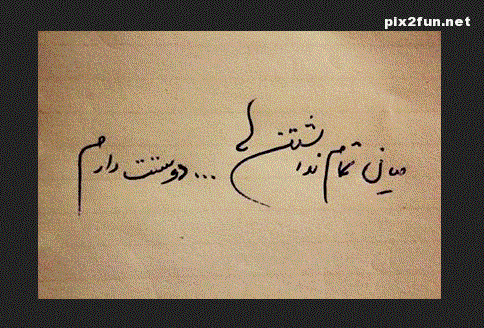 pix2fun.net
میان تمام نداشتن ها ... دوستت دارم